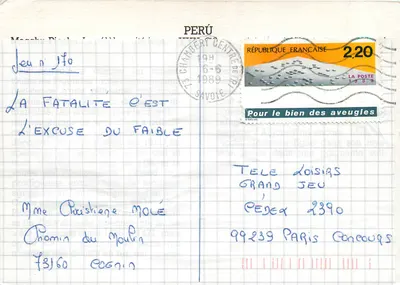 PERÚ
Jeu n° 170
LA FATALITÉ C'EST
L'EXCUSE DU FAIBLE
Mme Christiane MOLÉ
Chemin du Moulin
73160 COGNIN
73 CHAMBERY CENTRE
19H
6-6
1989
SAVOIE
RÉPUBLIQUE FRANÇAISE
2,20
LA POSTE
Pour le bien des aveugles
TELE LOISIRS
GRAND JEU
CEDEX 2390
99239 PARIS CONCOURS